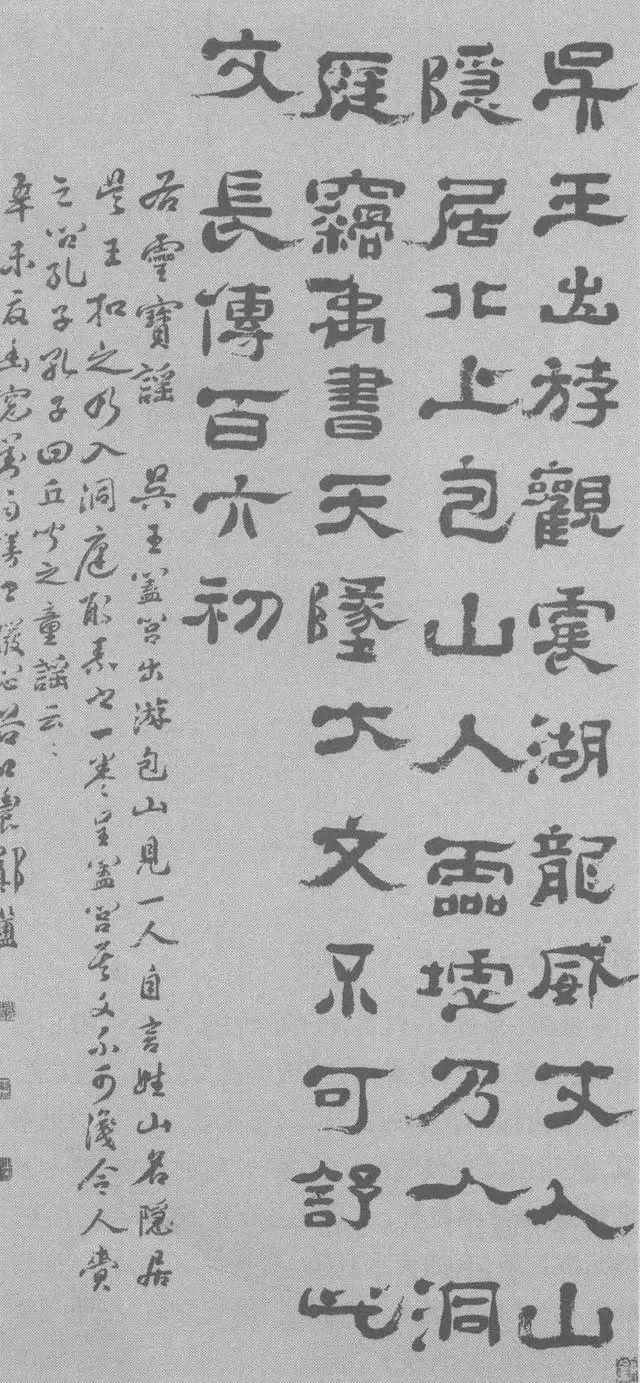 吳王出斿觀震湖龍威丈人山
隱居北上包山入靈墟乃入洞
庭竊禹書天墜大文不可舒此
文長傳百六初
右靈寶謠 吳王闔閭出游包山見一人自言姓山名隱居
吳王扣之乃入洞庭取素書一卷呈闔閭其文不可識令人齎
之問孔子孔子曰丘聞之童謠云云
辛未夏 谷口農鄭簠